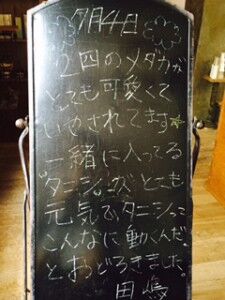 7月4日
2匹のメダカが
とても可愛くて
いやされてます☆
一緒に入ってる
"タニシーズ"とても
元気で、タニシって
こんなに動くんだ。
とおどろきました。
田嶋